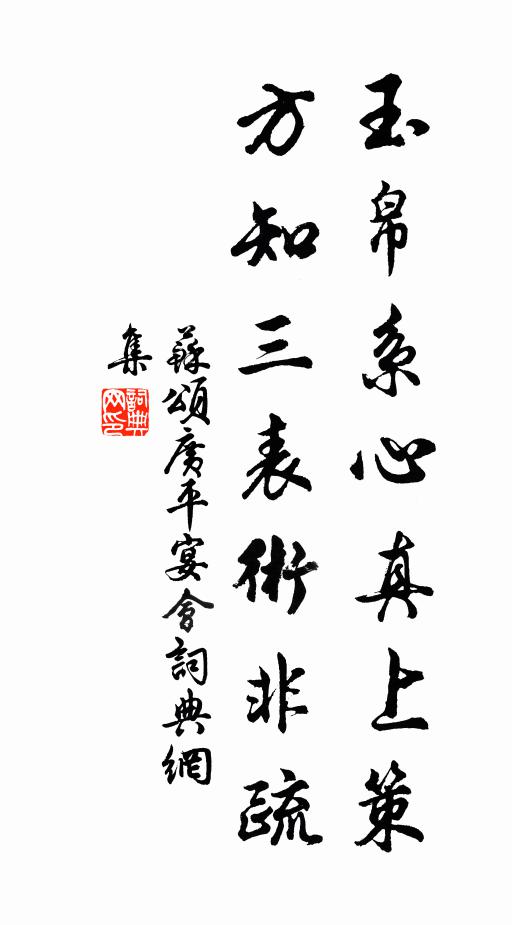 玉帛系心真上策
方知三表術非疏
蘇頌廣平宴會詞典網
集
詞典
网印